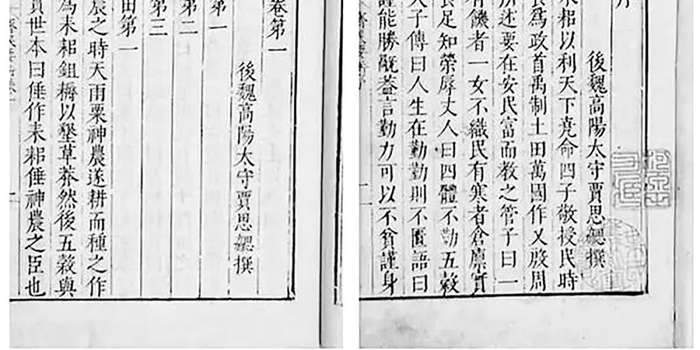 後魏高陽太守賈思勰撰
耒耜以利天下堯命四子敬授民時
為政首禹制土田萬國作乂殷周
所述要在安民富而教之管子曰一
有饑者一女不織民有寒者倉廩實
食足知榮辱丈人曰四體不勤五穀
夫子傳曰人生在勤勤則不匱語曰
謹能勝禍蓋言勤力可以不貧謹身
卷第一
後魏高陽太守賈思勰撰
第一
第二
第三
田第一
農之時天雨粟神農遂耕而種之作
為耒耜鉏耨以墾草莽然後五穀與
實世本曰倕作耒耜倕神農之臣也